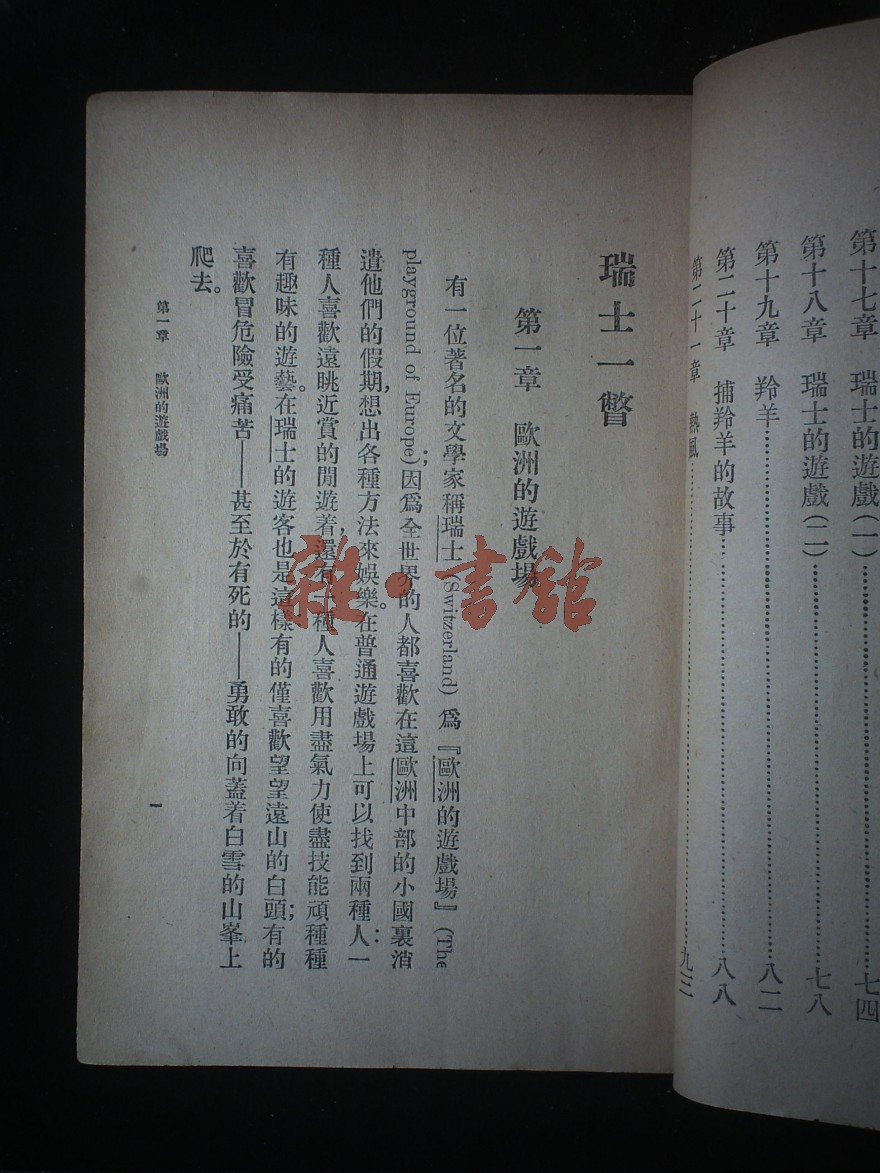 第十七章　瑞士的遊戲(一)……七四
第十八章　瑞士的遊戲(二)……七八
第十九章　羚羊……八二
第二十章　捕羚羊的故事……八八
第二十一章　熱風……九三
瑞士一瞥
第一章　歐洲的遊戲場
有一位著名的文學家稱瑞士(Switzerland)爲『歐洲的遊戲場』(The
playground of Europe)；因爲全世界的人都喜歡在這歐洲中部的小國裏消
遣他們的假期，想出各種方法來娛樂。在普通遊戲場上可以找到兩種人：一
種人喜歡遠眺近賞的閒遊着，還有一種人喜歡用盡氣力使盡技能頑種種
有趣味的遊藝。在瑞士的遊客也是這樣：有的僅喜歡望望遠山的白頭；有的
喜歡冒危險受痛苦——甚至於有死的——勇敢的向蓋着白雪的山峯上
爬去。
第一章　歐洲的遊戲場
一
雜·書館